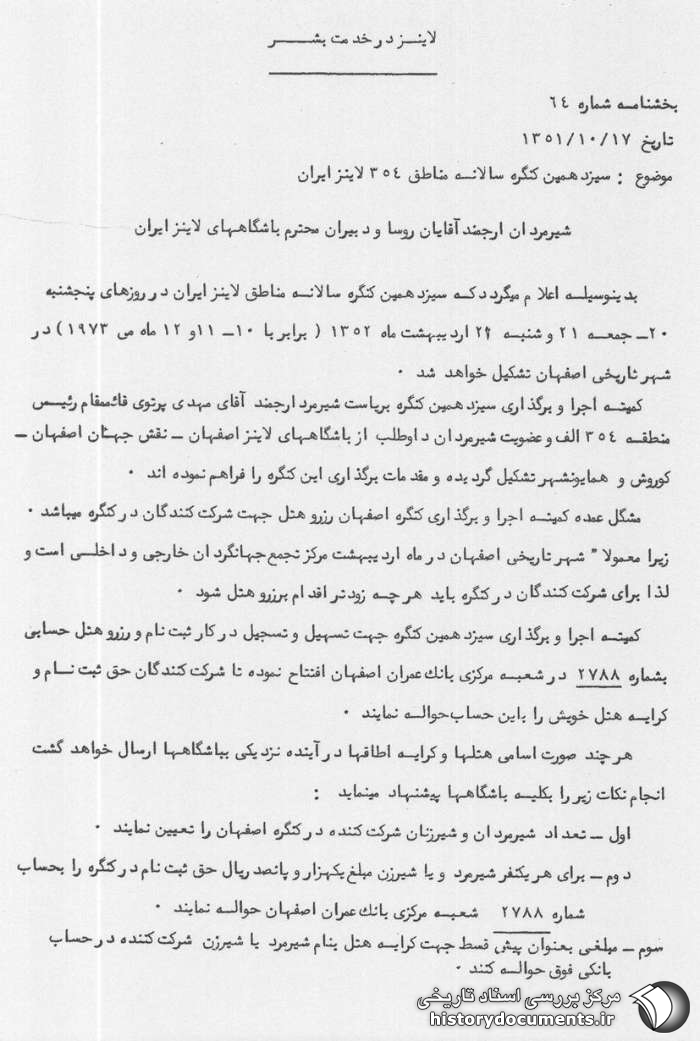 لاینز در خدمت بشر
بخشنامه شماره ٦٤
تاریخ ١٣٥١/١٠/١٧
موضوع : سیزدهمین کنگره سالانه مناطق ٣٥٤ لاینز ایران
شیرمردان ارجمند آقایان روسا و دبیران محترم باشگاههای لاینز ایران
بدینوسیله اعلام میگردد که سیزدهمین کنگره سالانه مناطق لاینز ایران در روزهای پنجشنبه
٢٠ـ جمعه ٢١ و شنبه ٢٢ اردیبهشت ماه ١٣٥٢ ( برابر با ١٠ـ ١١و ١٢ ماه می ١٩٧٣ ) در
شهر تاریخی اصفهان تشکیل خواهد شد ٠
کمیته اجرا و برگذاری سیزدهمین کنگره بریاست شیرمرد ارجمند آقای مهدی پرتوی قائمقام رئیس
منطقه ٣٥٤ الف و عضویت شیرمردان داوطلب از باشگاههای لاینز اصفهان ـ نقش جهان اصفهان ـ
کوروش و همایونشهر تشکیل گردیده و مقدمات برگذاری این کنگره را فراهم نموده اند ٠
مشگل عمده کمیته اجرا و برگذاری کنگره اصفهان رزرو هتل جهت شرکت کنندگان در کنگره میباشد ٠
زیرا معمولا" شهر تاریخی اصفهان در ماه اردیبهشت مرکز تجمع جهانگردان خارجی و داخلی است و
لذا برای شرکت کنندگان در کنگره باید هر چه زودتر اقدام برزرو هتل شود ٠
کمیته اجرا و برگذاری سیزدهمین کنگره جهت تسهیل و تسجیل در کار ثبت نام و رزرو هتل حسابی
بشماره ٢٧٨٨ در شعبه مرکزی بانک عمران اصفهان افتتاح نموده تا شرکت کنندگان حق ثبت نام و
کرایه هتل خویش را باین حساب حواله نمایند ٠
هر چند صورت اسامی هتلها و کرایه اطاقها در آینده نزدیکی بباشگاهها ارسال خواهد گشت
انجام نکات زیر را بکلیه باشگاهها پیشنهاد مینماید :
اول ـ تعداد شیرمردان و شیرزنان شرکت کننده در کنگره اصفهان را تعیین نمایند ٠
دوم ـ برای هر یکنفر شیرمرد و یا شیرزن مبلغ یکهزار و پانصد ریال حق ثبت نام در کنگره را بحساب
شماره ٢٧٨٨ شعبه مرکزی بانک عمران اصفهان حواله نمایند ٠
سوم ـ مبلغی بعنوان پیش قسط جهت کرایه هتل بنام شیرمرد یا شیرزن شرکت کننده در حساب
بانکی فوق حواله کنند ٠
مرکز بررسی اسناد تاریخی
historydocuments.ir